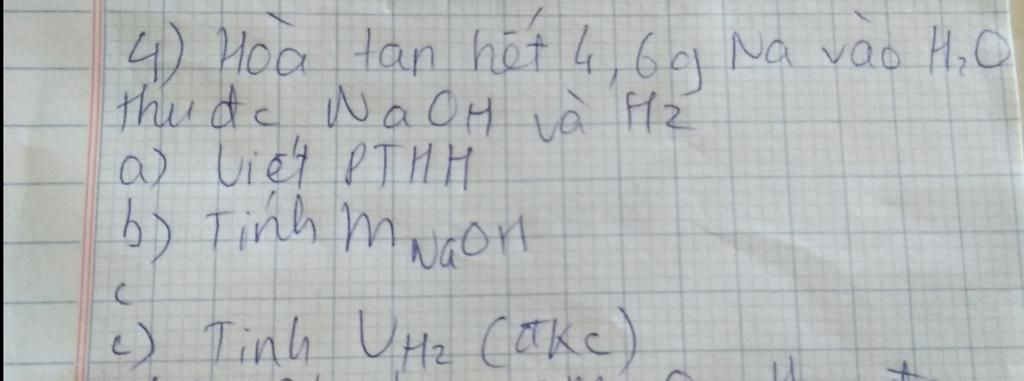 4) Hoà tan hết 4,6g Na vào H₂O
thu đc NaOH và H2
a) Viết PTHH
b) Tính mNaOH
c
c) Tính VH2 (đkc)